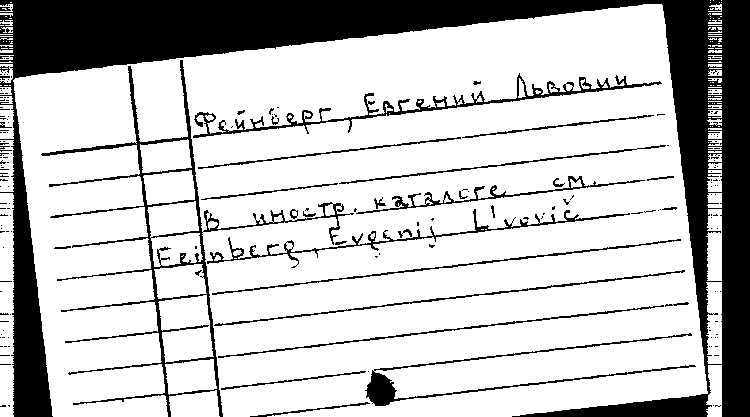 Фейнберг, Евгений Львович
В иностр. каталоге см.
Fejnberg, Evgenij L'vovič